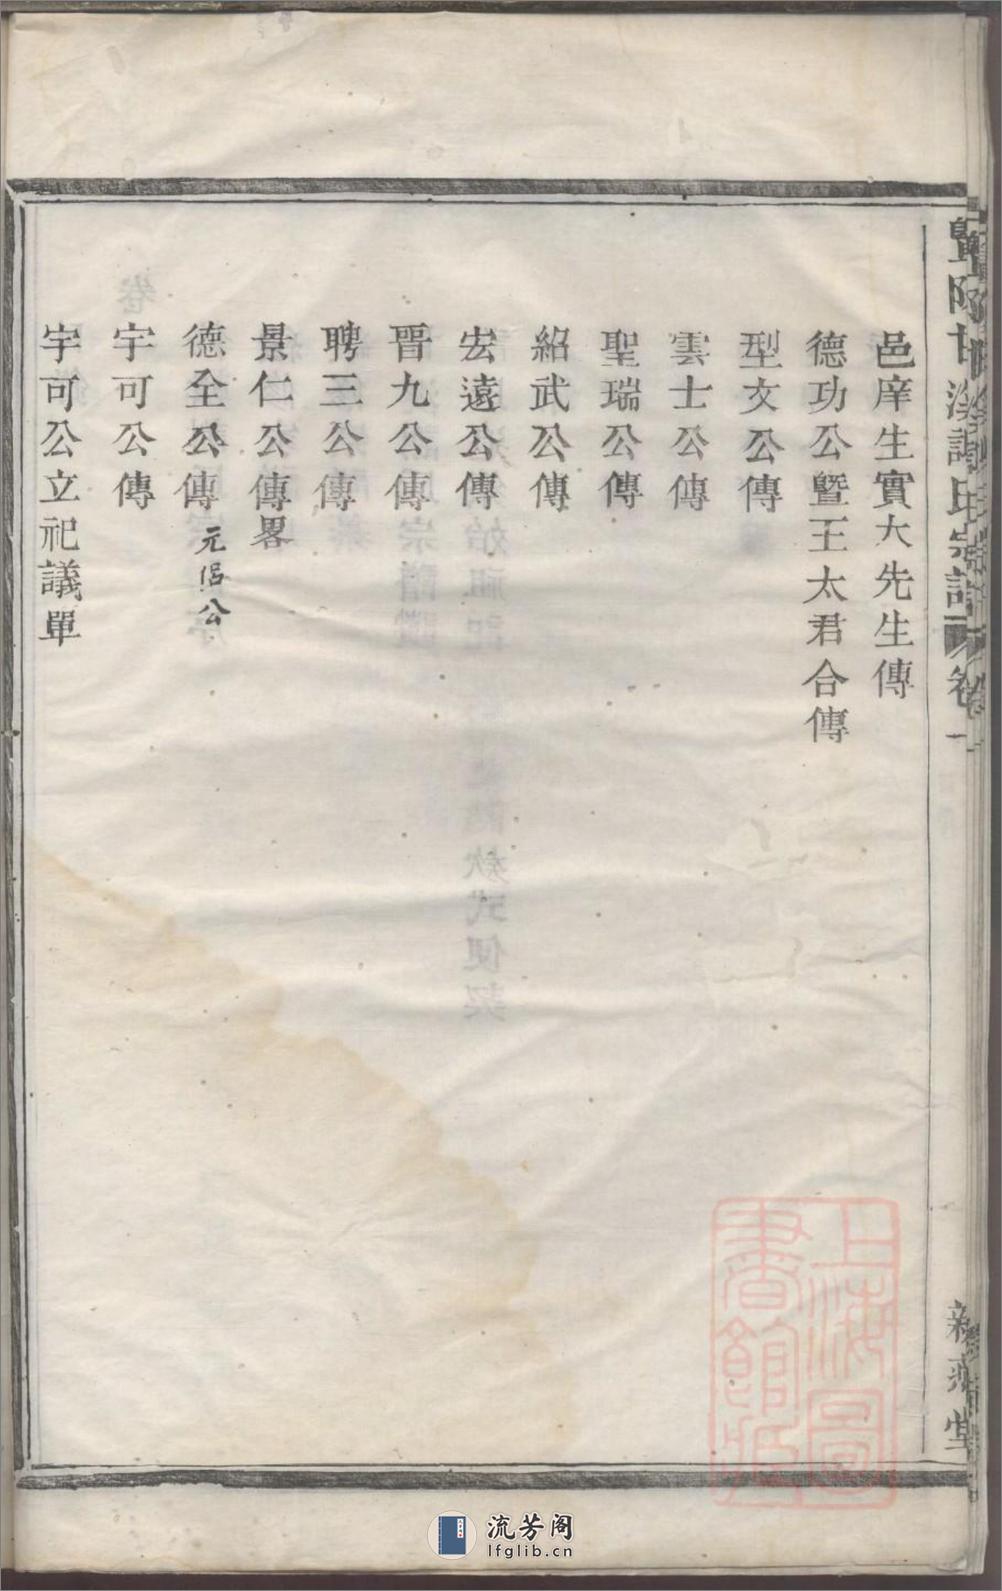 邑庠生實大先生傳
德功公暨王太君合傳
型文公傳
雲士公傳
聖瑞公傳
紹武公傳
宏遠公傳
晋九公傳
聘三公傳
景仁公傳畧
德全公傳 元侶公
宇可公傳
宇可公立祀議單
暨陽甘溪 氏宗譜 卷一
堂
上海圖書館藏
流芳阁
lfglib.cn